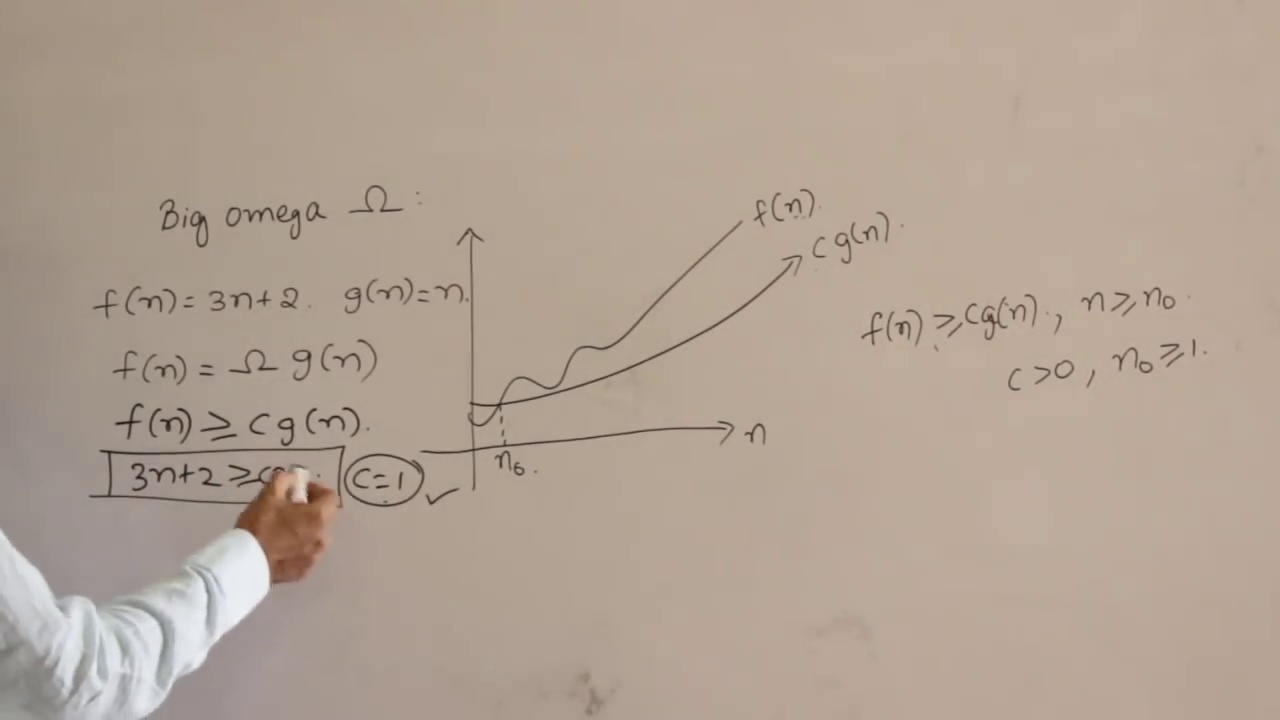 Big omega Ω :
f(n) = 3n+2. g(n) = n.
f(n) = Ω g(n)
f(n) ≥ cg(n).
3n+2 ≥ c
c=1
f(n).
cg(n).
n
n₀.
f(n) ≥ cg(n)., n ≥ n₀.
c>0, n₀ ≥ 1.